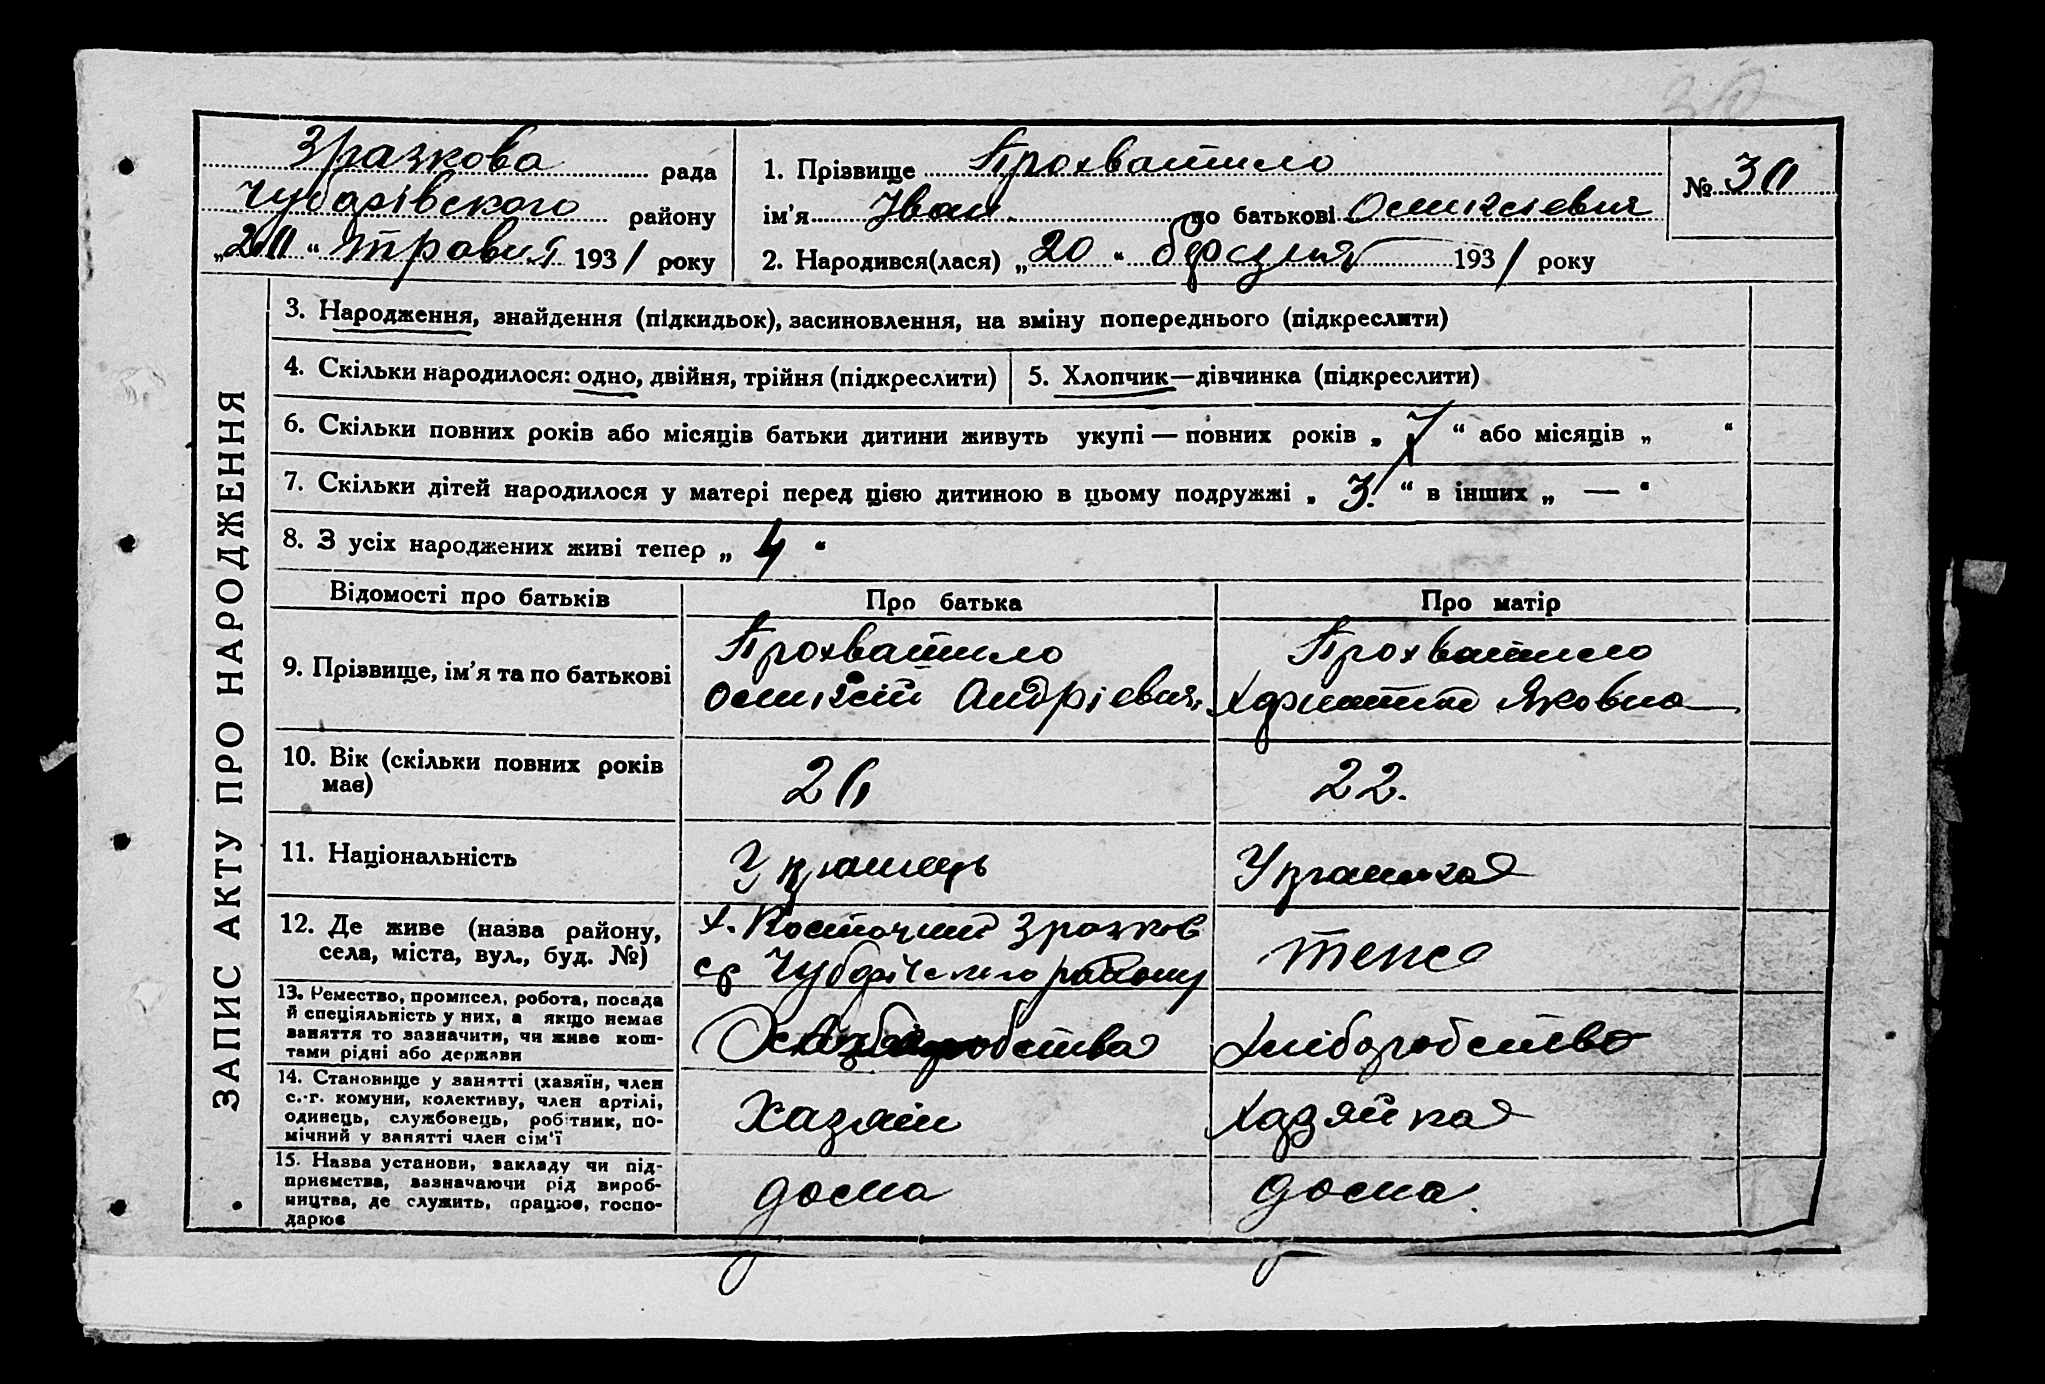 Зразкова рада
Чубарівського району
„20“ травня 1931 року
1. Прізвище Прохватило
ім'я Іван по батькові
2. Народився(лася) „20“ березня 1931 року
№ 30
ЗАПИС АКТУ ПРО НАРОДЖЕННЯ
3. Народження, знайдення (підкидьок), засиновлення, на зміну попереднього (підкреслити)
4. Скільки народилося: одно, двійня, трійня (підкреслити)
5. Хлопчик—дівчинка (підкреслити)
6. Скільки повних років або місяців батьки дитини живуть укупі — повних років „7“ або місяців „ “
7. Скільки дітей народилося у матері перед цією дитиною в цьому подружжі „3“ в інших „—“
8. З усіх народжених живі тепер „4“
Відомості про батьків
Про батька
Про матір
9. Прізвище, ім'я та по батькові
Прохватило
Андрієвич
Прохватило
Яковна
10. Вік (скільки повних років
має)
22.
11. Національність
Українець
Українка
12. Де живе (назва району,
села, міста, вул., буд. №)
х. Зразков
ср району
теж
13. Ремество, промисел, робота, посада
й спеціяльність у них, а якщо немає
заняття то зазначити, чи живе кош-
тами рідні або держави
Хліборобство
14. Становище у занятті (хазяїн, член
с.-г. комуни, колективу, член артілі,
одинець, службовець, робітник, по-
мічний у занятті член сім'ї
Хазяїн
Хазяйка
15. Назва установи, закладу чи під-
приємства, зазначаючи рід вироб-
ництва, де служить, працює, госпо-
дарює
дома
дома